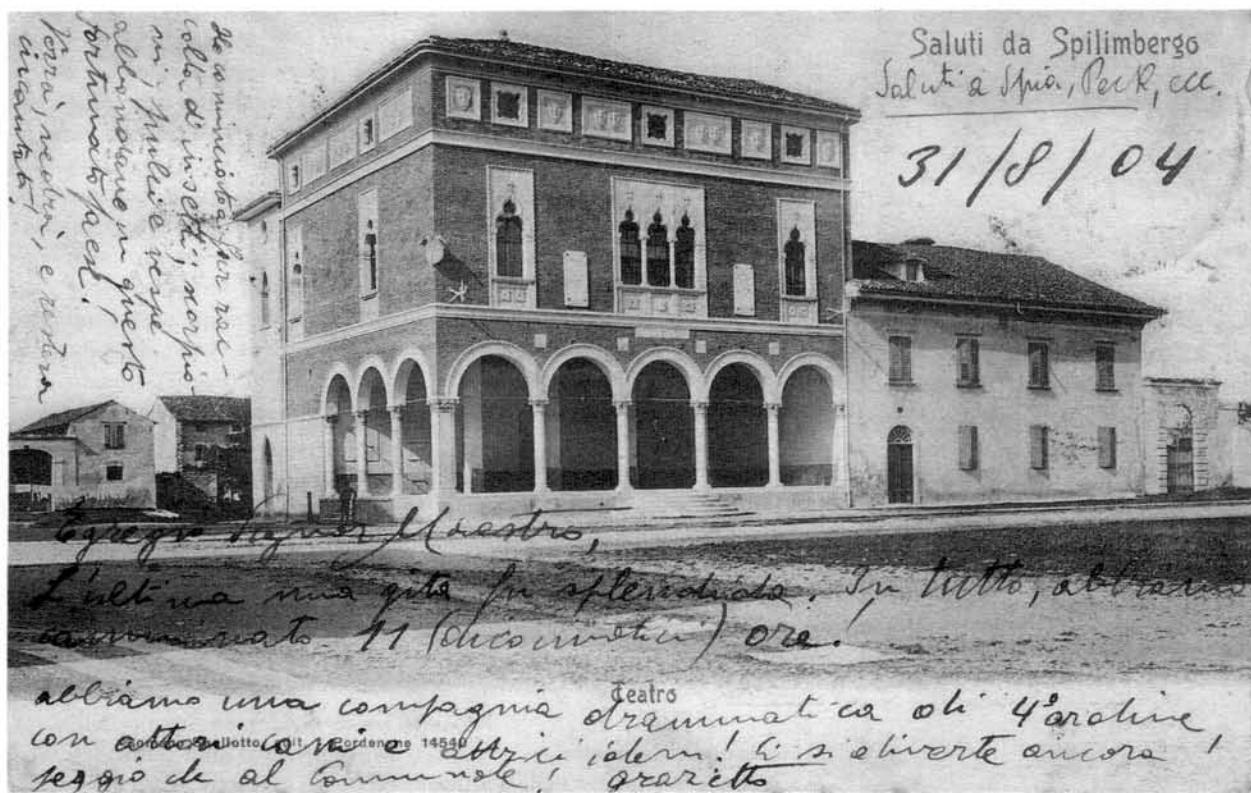 Saluti da Spilimbergo
Saluti a Spia, Peck, ecc.
31/8/04
Ho cominciato la mia rac-
colta d'insetti; scorpio-
ni, pulci e vespe
abbondano in questo
fortunato paese!
Verrà, vedrà, e resterà
incantato!
Egregio Signor Maestro,
L'ultima mia gita fu splendida. In tutto, abbiamo
camminato 11 (dico undici) ore!
Teatro
abbiamo una compagnia drammatica di 4° ordine,
con attori cani e attrici idem! Ci si diverte ancora
peggio che al Comunale!
14540